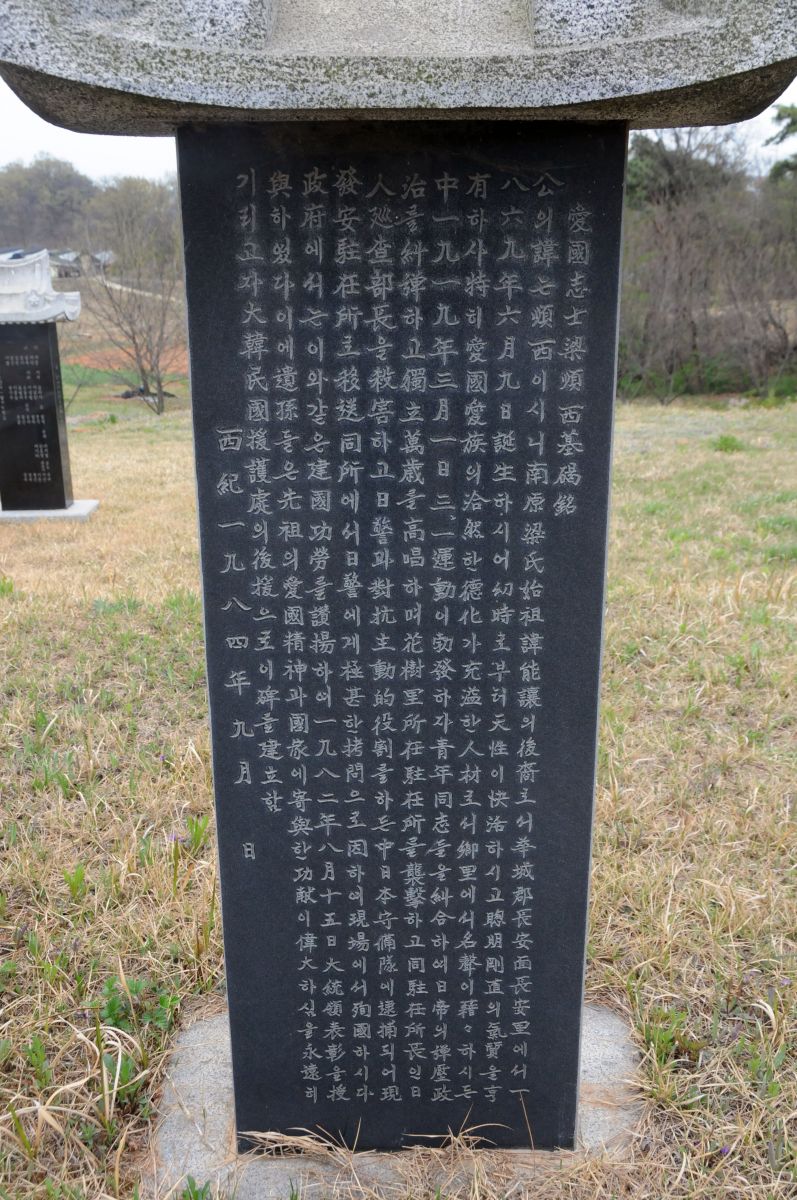 愛國志士梁順西基碣銘
公의諱는順西이시니南原梁氏始祖諱能讓의後裔로서華城郡長安面長安里에서一
八六九年六月九日誕生하시어幼時로부터天性이快活하시고聰明剛直의氣質을享
有하사特히愛國愛族의洽然한德化가充溢한人材로서鄕里에서名聲이藉々하시든
中一九一九年三月一日三、一運動이勃發하자靑年同志들을糾合하여日帝의彈壓政
治를糾彈하고獨立萬歲를高唱하며花樹里所在駐在所를襲擊하고同駐在所長인日
人巡査部長을殺害하고日警과對抗主動的役割를하든中日本守備隊에逮捕되어現
發安駐在所로移送同所에서日警에게極甚한拷問으로因하여現場에서殉國하시다
政府에서는이와같은建國功勞를讚揚하여一九八二年八月十五日大統領表彰을授
與하였다이에遺孫들은先祖의愛國精神과國家에寄與한功献이偉大하심을永遠히
기리고자大韓民國援護處의後援으로이碑를建立함
西紀一九八四年九月 日